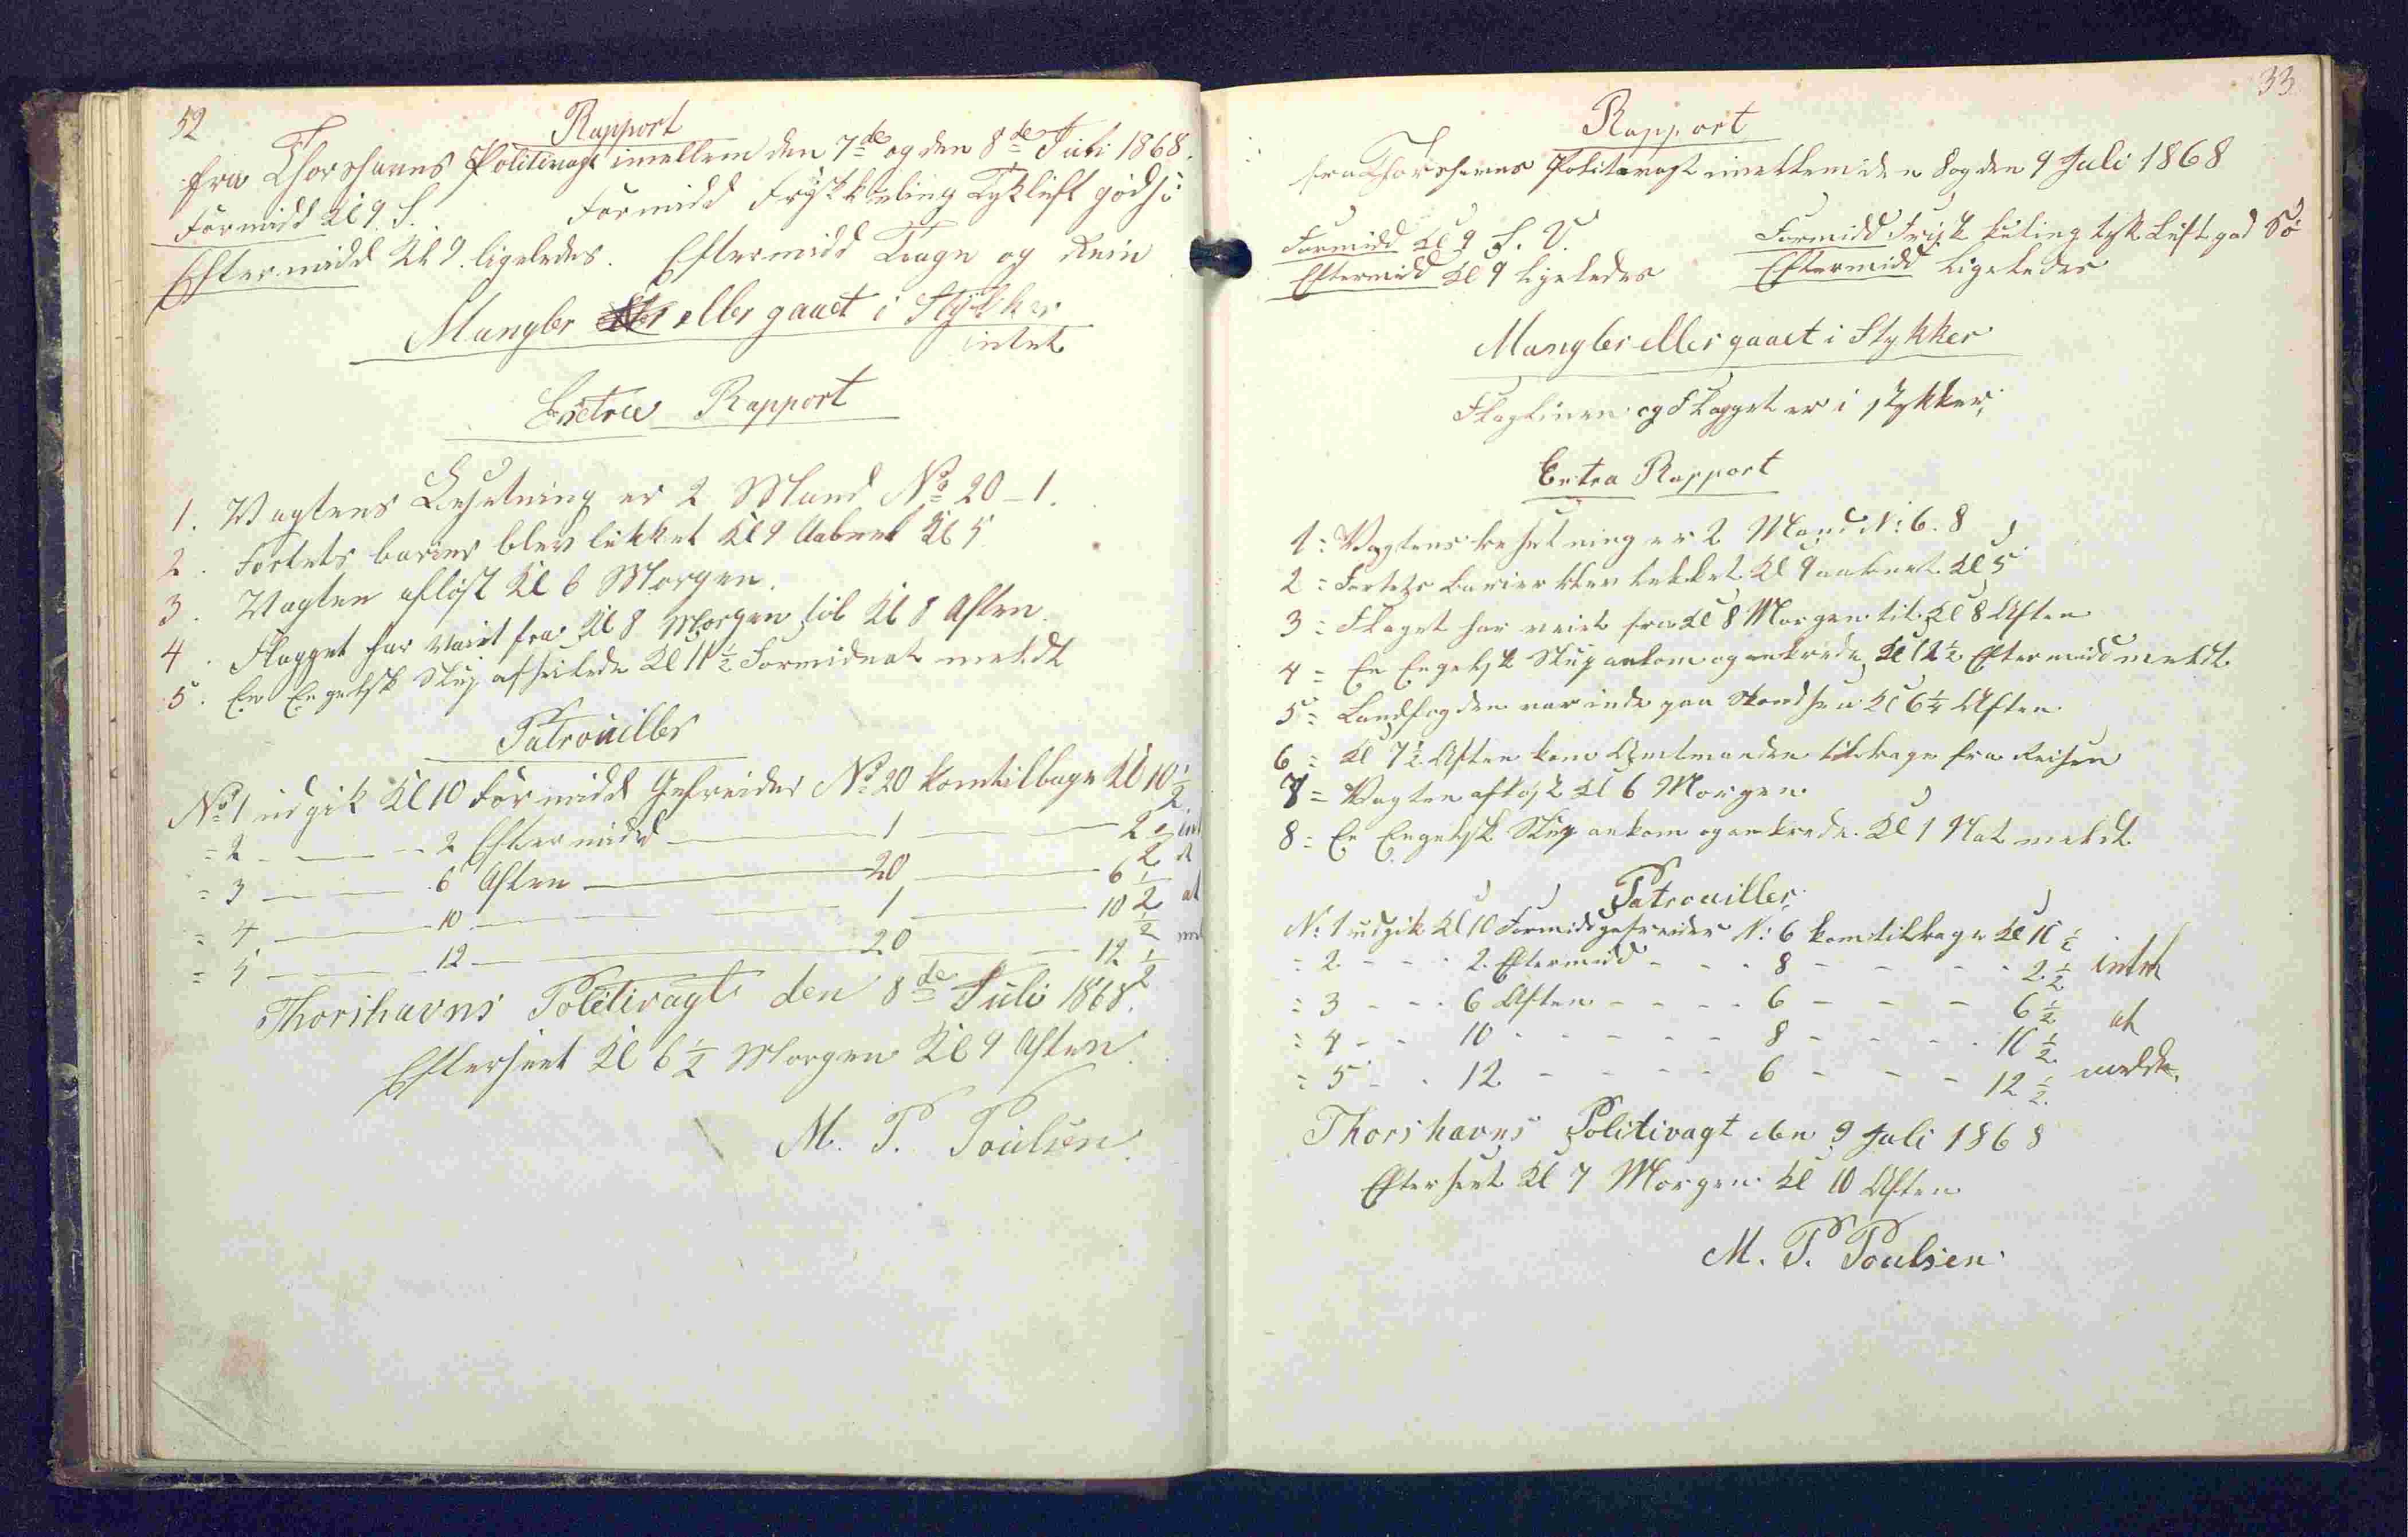 52
Rapport
fra Thorshavns Politivagt imellem den 7de og den 8de Juli 1868.
Formidd Kl 9 S. Formidd Frisk kuling Tyk luft god Sö
Eftermidd Kl 9 ligeledes. Eftermidd Taage og Rein
Mangler eller gaaet i Stykker
intet
Exstra Rapport
1. Vagtens Besetning er 2 Mand No 20 - 1.
2. Fortets barier blev lukket Kl 9 Aabnet Kl 5
3. Vagten aflöst Kl 6 Morgen.
4. Flagget har vaiet fra Kl 8 Morgen til Kl 8 Aften.
5. En Engelsk Slup afseilede Kl 11 1/2 Formidat meldt
Patrouiller
No 1 udgik Kl 10 Formidd Gefreider No 20 kom tilbage Kl 10 1/2
= 2 - - - 2 Eftermidd - 1 - - 2 1/2 int
= 3 - - 6 Aften - 20 - 6 1/2 et
= 4 - 10 - - - 1 - 10 1/2 at
= 5 - - 12 - - 20 - - 12 1/2 mel
Thorshavns Politivagt den 8de Juli 1868.
Efterseet Kl 6 1/2 Morgen Kl 9 Aften.
M. P. Poulsen.
33
Rapport
fra Thorshavns Politivagt imellem den 8 og den 9 Juli 1868
Formidd Kl 9 S. V. Formidd Frisk kuling tyk Luft god Sö
Eftermidd Kl 9 ligeledes Eftermidd ligeledes
Mangler eller gaaet i Stykker
Flaglinen og Flagget er i stykker,
Extra Rapport
1 = Vagtens besetning er 2 Mand N: 6. 8
2 = Fortets Barier blev lukket Kl 9 aabnet Kl 5
3 = Flaget har veiet fra Kl 8 Morgen til Kl 8 Aften
4 = En Engelsk Slup ankom og ankrede Kl 12 1/2 Eftermidd meldt
5 = Landfogden var inde paa Skandsen Kl 6 1/4 Aften
6 = Kl 7 1/2 Aften kom Amtmanden tilbage fra Reisen
7 = Vagten aflöst Kl 6 Morgen
8 = En Engelsk Slup ankom og ankrede Kl 1 Nat meldt
Patrouiller
N: 1 udgik Kl 10 Formidd gefreider N: 6 kom tilbage Kl 10 1/2
= 2 - - - 2 Eftermidd - - - 8 - - - - 2 1/2 intet
= 3 - - - 6 Aften - - - - 6 - - - 6 1/2 at
= 4 - - 10 - - - - - - 8 - - - - 10 1/2
= 5 - - 12 - - - - - 6 - - - 12 1/2 melde.
Thorshavns Politivagt den 9 Juli 1868
Efterseet Kl 7 Morgen Kl 10 Aften
M. P. Poulsen